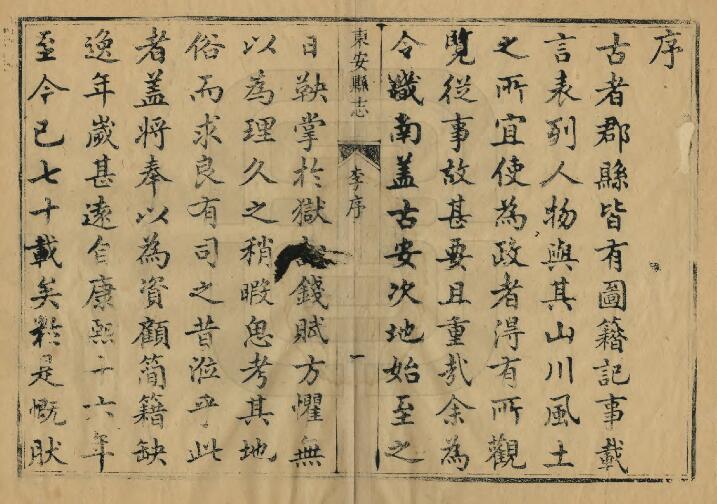 序
古者郡縣皆有圖籍記事載
言表列人物與其山川風土
之所宜使為政者得有所觀
覽從事故甚要且重哉余為
令畿南盖古安次地始至之
東安縣志
李序
一
日鞅掌於獄錢賦方懼無
以為理久之稍暇思考其地
俗而求良有司之昔涖乎此
者盖将奉以為資顧簡籍缺
逸年歲甚遠自康熙十六年
至今已七十載矣於是慨肰